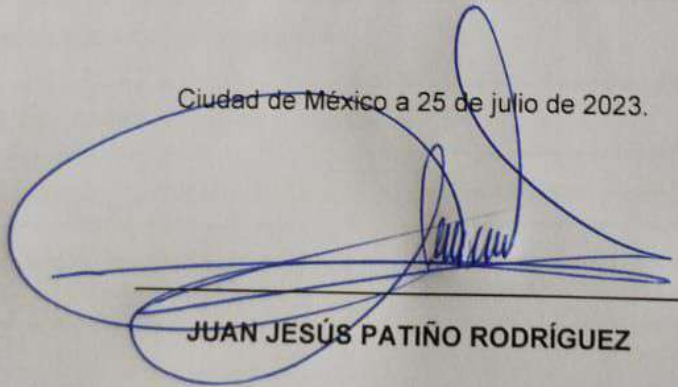 Ciudad de México a 25 de julio de 2023.
JUAN JESÚS PATIÑO RODRÍGUEZ